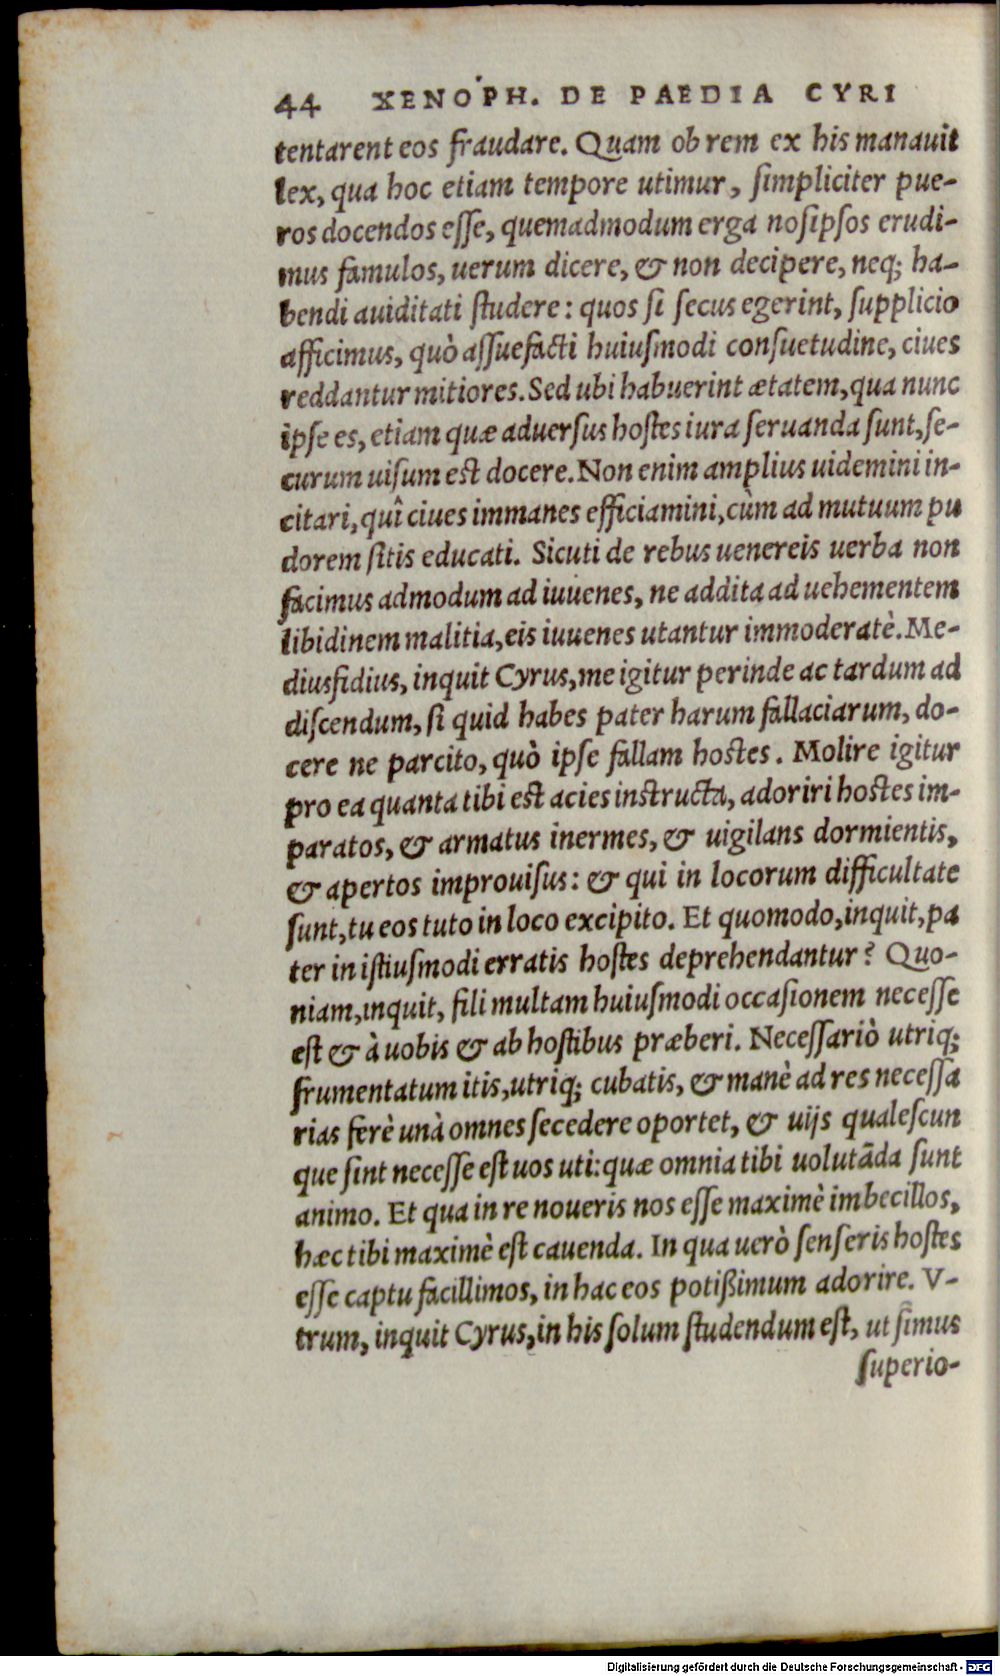 44 XENOPH. DE PAEDIA CYRI
tentarent eos fraudare. Quam ob rem ex his manauit
lex, qua hoc etiam tempore utimur, simpliciter pue-
ros docendos esse, quemadmodum erga nosipsos erudi-
mus famulos, uerum dicere, & non decipere, neq; ha-
bendi auiditati studere: quos si secus egerint, supplicio
afficimus, quò assuefacti huiusmodi consuetudine, ciues
reddantur mitiores. Sed ubi habuerint ætatem, qua nunc
ipse es, etiam quæ aduersus hostes iura seruanda sunt, se-
curum uisum est docere. Non enim amplius uidemini in-
citari, quî ciues immanes efficiamini, cùm ad mutuum pu
dorem sitis educati. Sicuti de rebus uenereis uerba non
facimus admodum ad iuuenes, ne addita ad uehementem
libidinem malitia, eis iuuenes utantur immoderatè. Me-
diusfidius, inquit Cyrus, me igitur perinde ac tardum ad
discendum, si quid habes pater harum fallaciarum, do-
cere ne parcito, quò ipse fallam hostes. Molire igitur
pro ea quanta tibi est acies instructa, adoriri hostes im-
paratos, & armatus inermes, & uigilans dormientis,
& apertos improuisus: & qui in locorum difficultate
sunt, tu eos tuto in loco excipito. Et quomodo, inquit, pa
ter in istiusmodi erratis hostes deprehendantur? Quo-
niam, inquit, fili multam huiusmodi occasionem necesse
est & à uobis & ab hostibus præberi. Necessariò utriq;
frumentatum itis, utriq; cubatis, & manè ad res necessa
rias ferè unà omnes secedere oportet, & uijs qualescun
que sint necesse est uos uti: quæ omnia tibi uolutãda sunt
animo. Et qua in re noueris nos esse maximè imbecillos,
hæc tibi maximè est cauenda. In qua uerò senseris hostes
esse captu facillimos, in hac eos potißimum adorire. V-
trum, inquit Cyrus, in his solum studendum est, ut simus
superio-
Digitalisierung gefördert durch die Deutsche Forschungsgemeinschaft - DFG